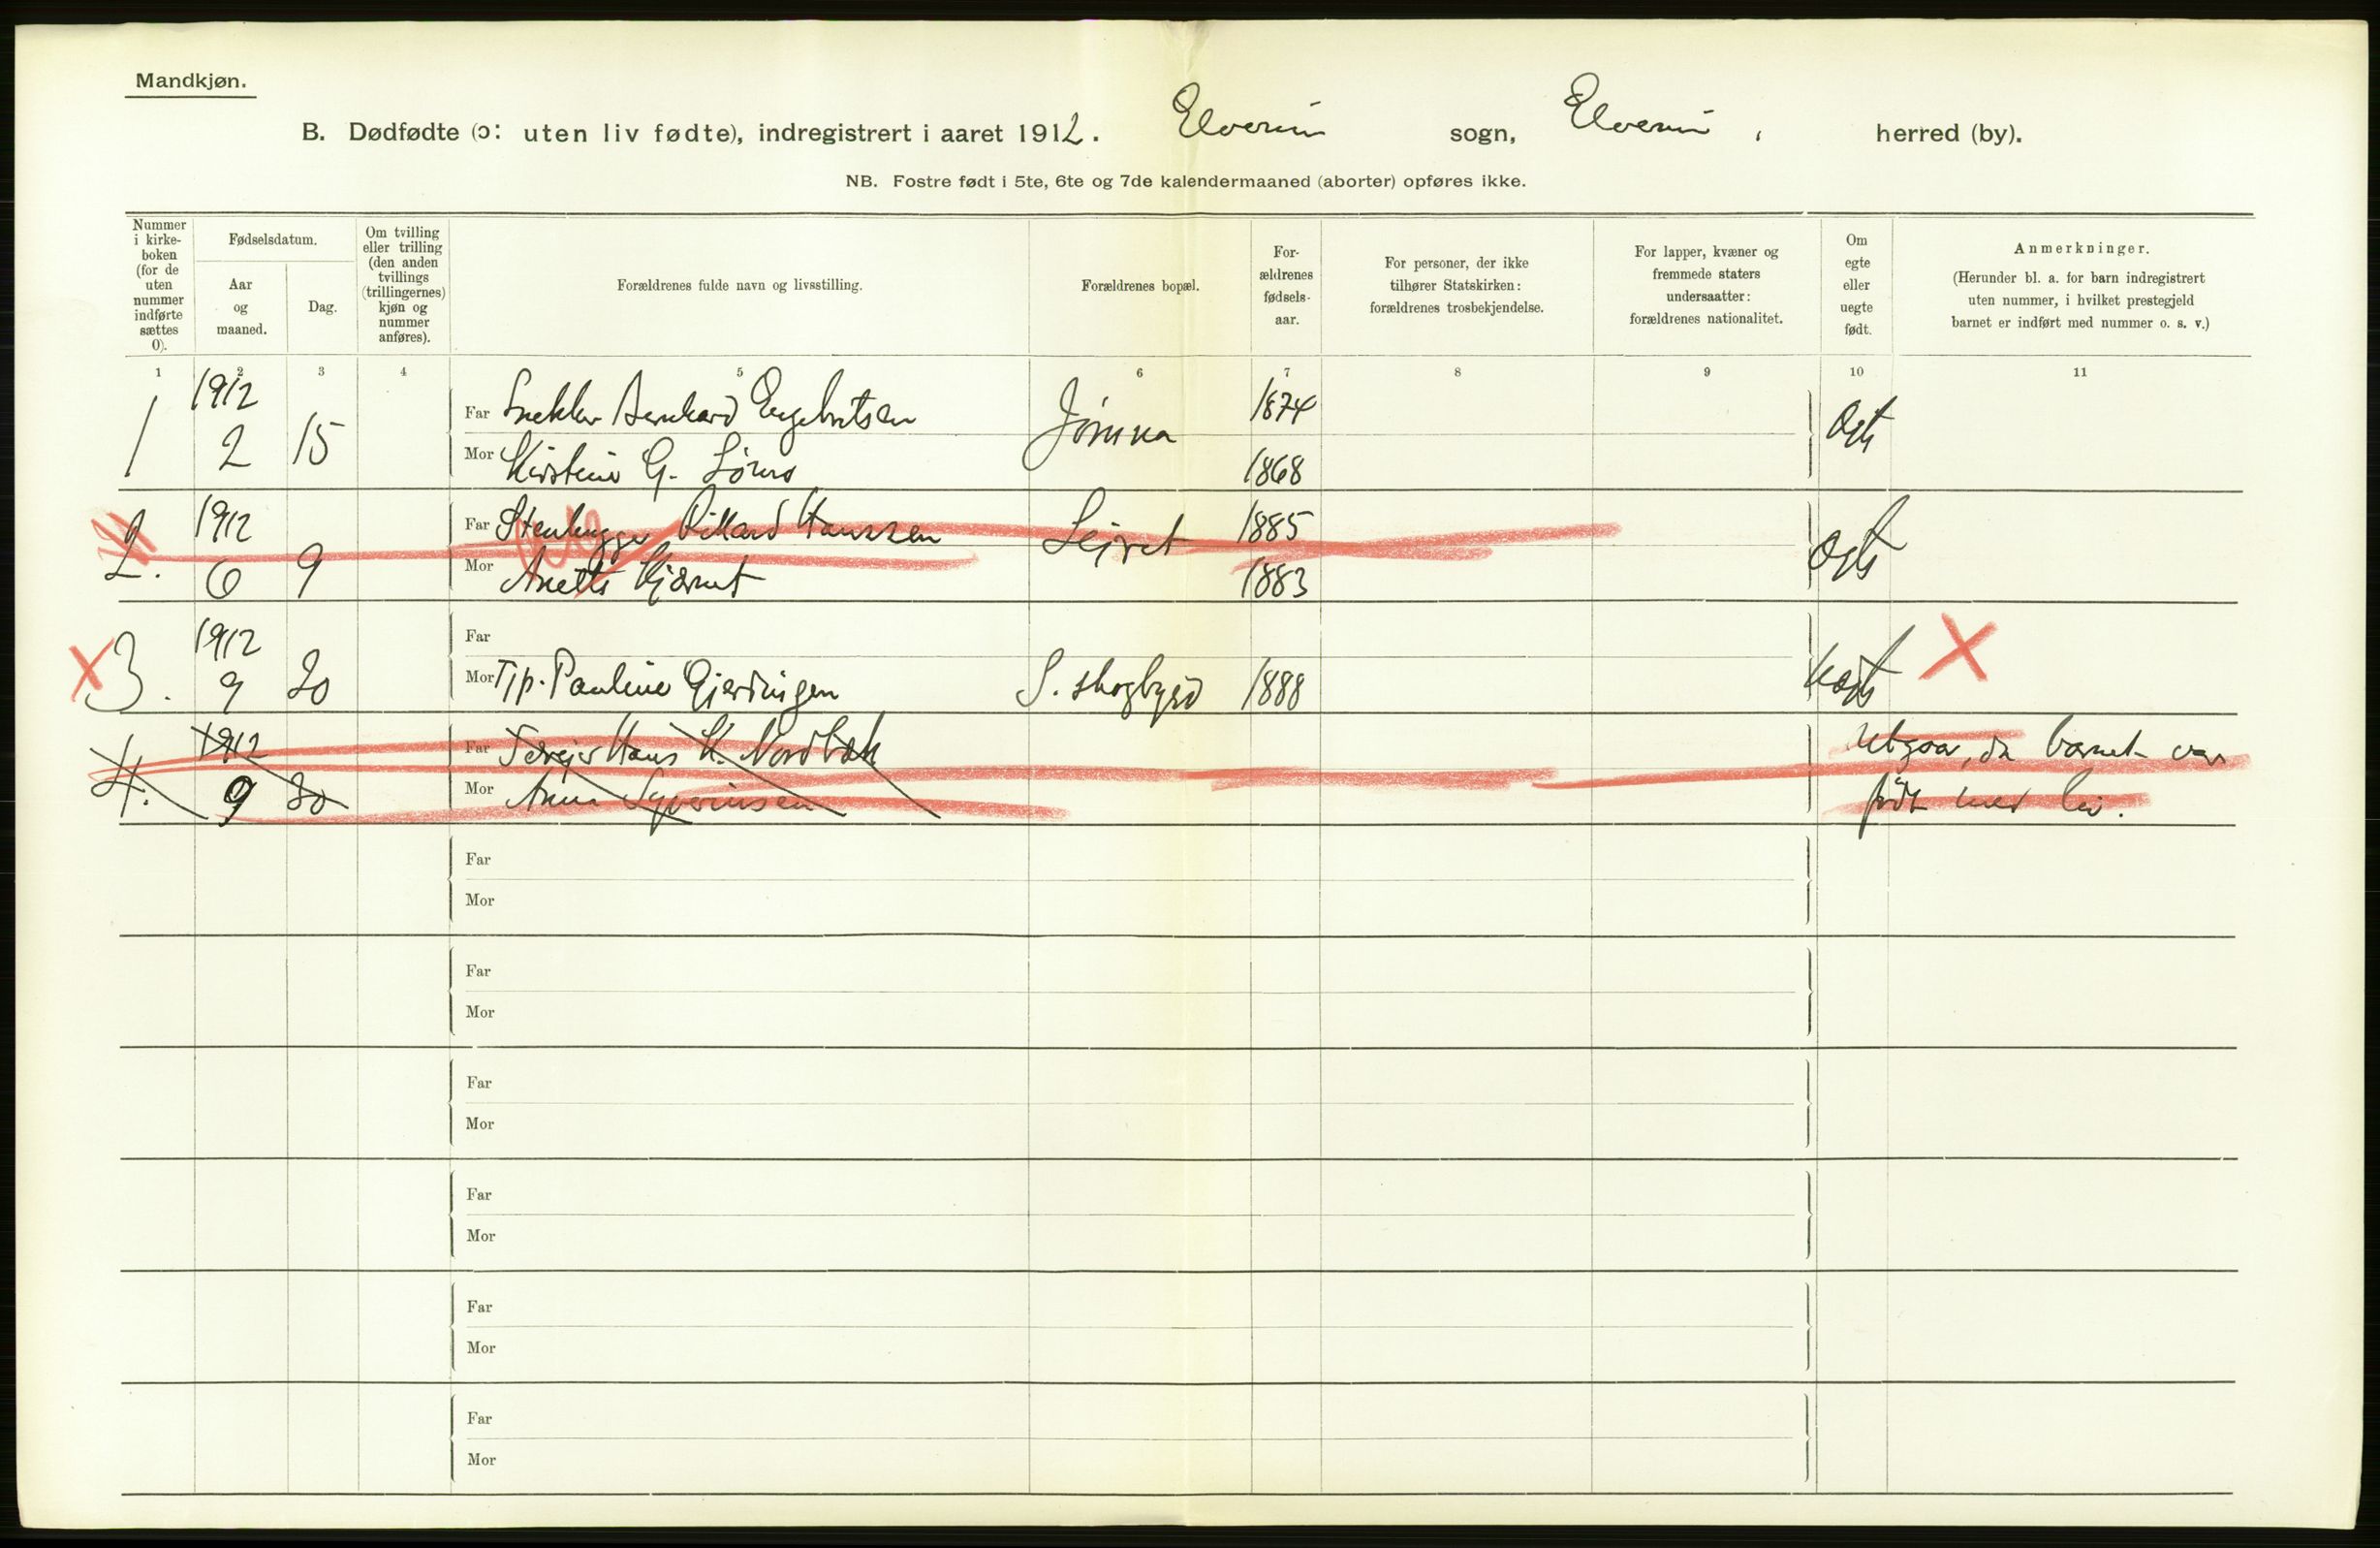 Mandkjøn.
B. Dødfødte (ɔ: uten liv fødte), indregistrert i aaret 1912. Elverum sogn, Elverum, herred (by).
NB. Fostre født i 5te, 6te og 7de kalendermaaned (aborter) opføres ikke.
Nummer i kirke-boken (for de uten nummer indførte sættes 0).
Fødselsdatum.
Aar og maaned.
Dag.
Om tvilling eller trilling (den anden tvillings (trillingernes) kjøn og nummer anføres).
Forældrenes fulde navn og livsstilling.
Forældrenes bopæl.
For-ældrenes fødsels-aar.
For personer, der ikke tilhører Statskirken: forældrenes trosbekjendelse.
For lapper, kvæner og fremmede staters undersaatter: forældrenes nationalitet.
Om egte eller uegte født.
Anmerkninger.
(Herunder bl. a. for barn indregistrert uten nummer, i hvilket prestegjeld barnet er indført med nummer o. s. v.)
1 2 3 4 5 6 7 8 9 10 11
1 1912 2 15 Far Snekker Bernhard Engebretsen Jømna 1874 Ægte
Mor Kirstine G. 1868
2. 1912 6 9 Far Stenhugger Rikard Hanssen Lejret 1885 Ægte
Mor Anette 1883
3. 1912 9 20 Far
Mor Tjp. Pauline Gjerdingen S. skogbygd 1888 Uægte
4. 1912 9 20 Far Hans H. Nordbæk Utgaar, da barnet var
Mor Anna Syverinsen født med liv.
Far
Mor
Far
Mor
Far
Mor
Far
Mor
Far
Mor
Far
Mor